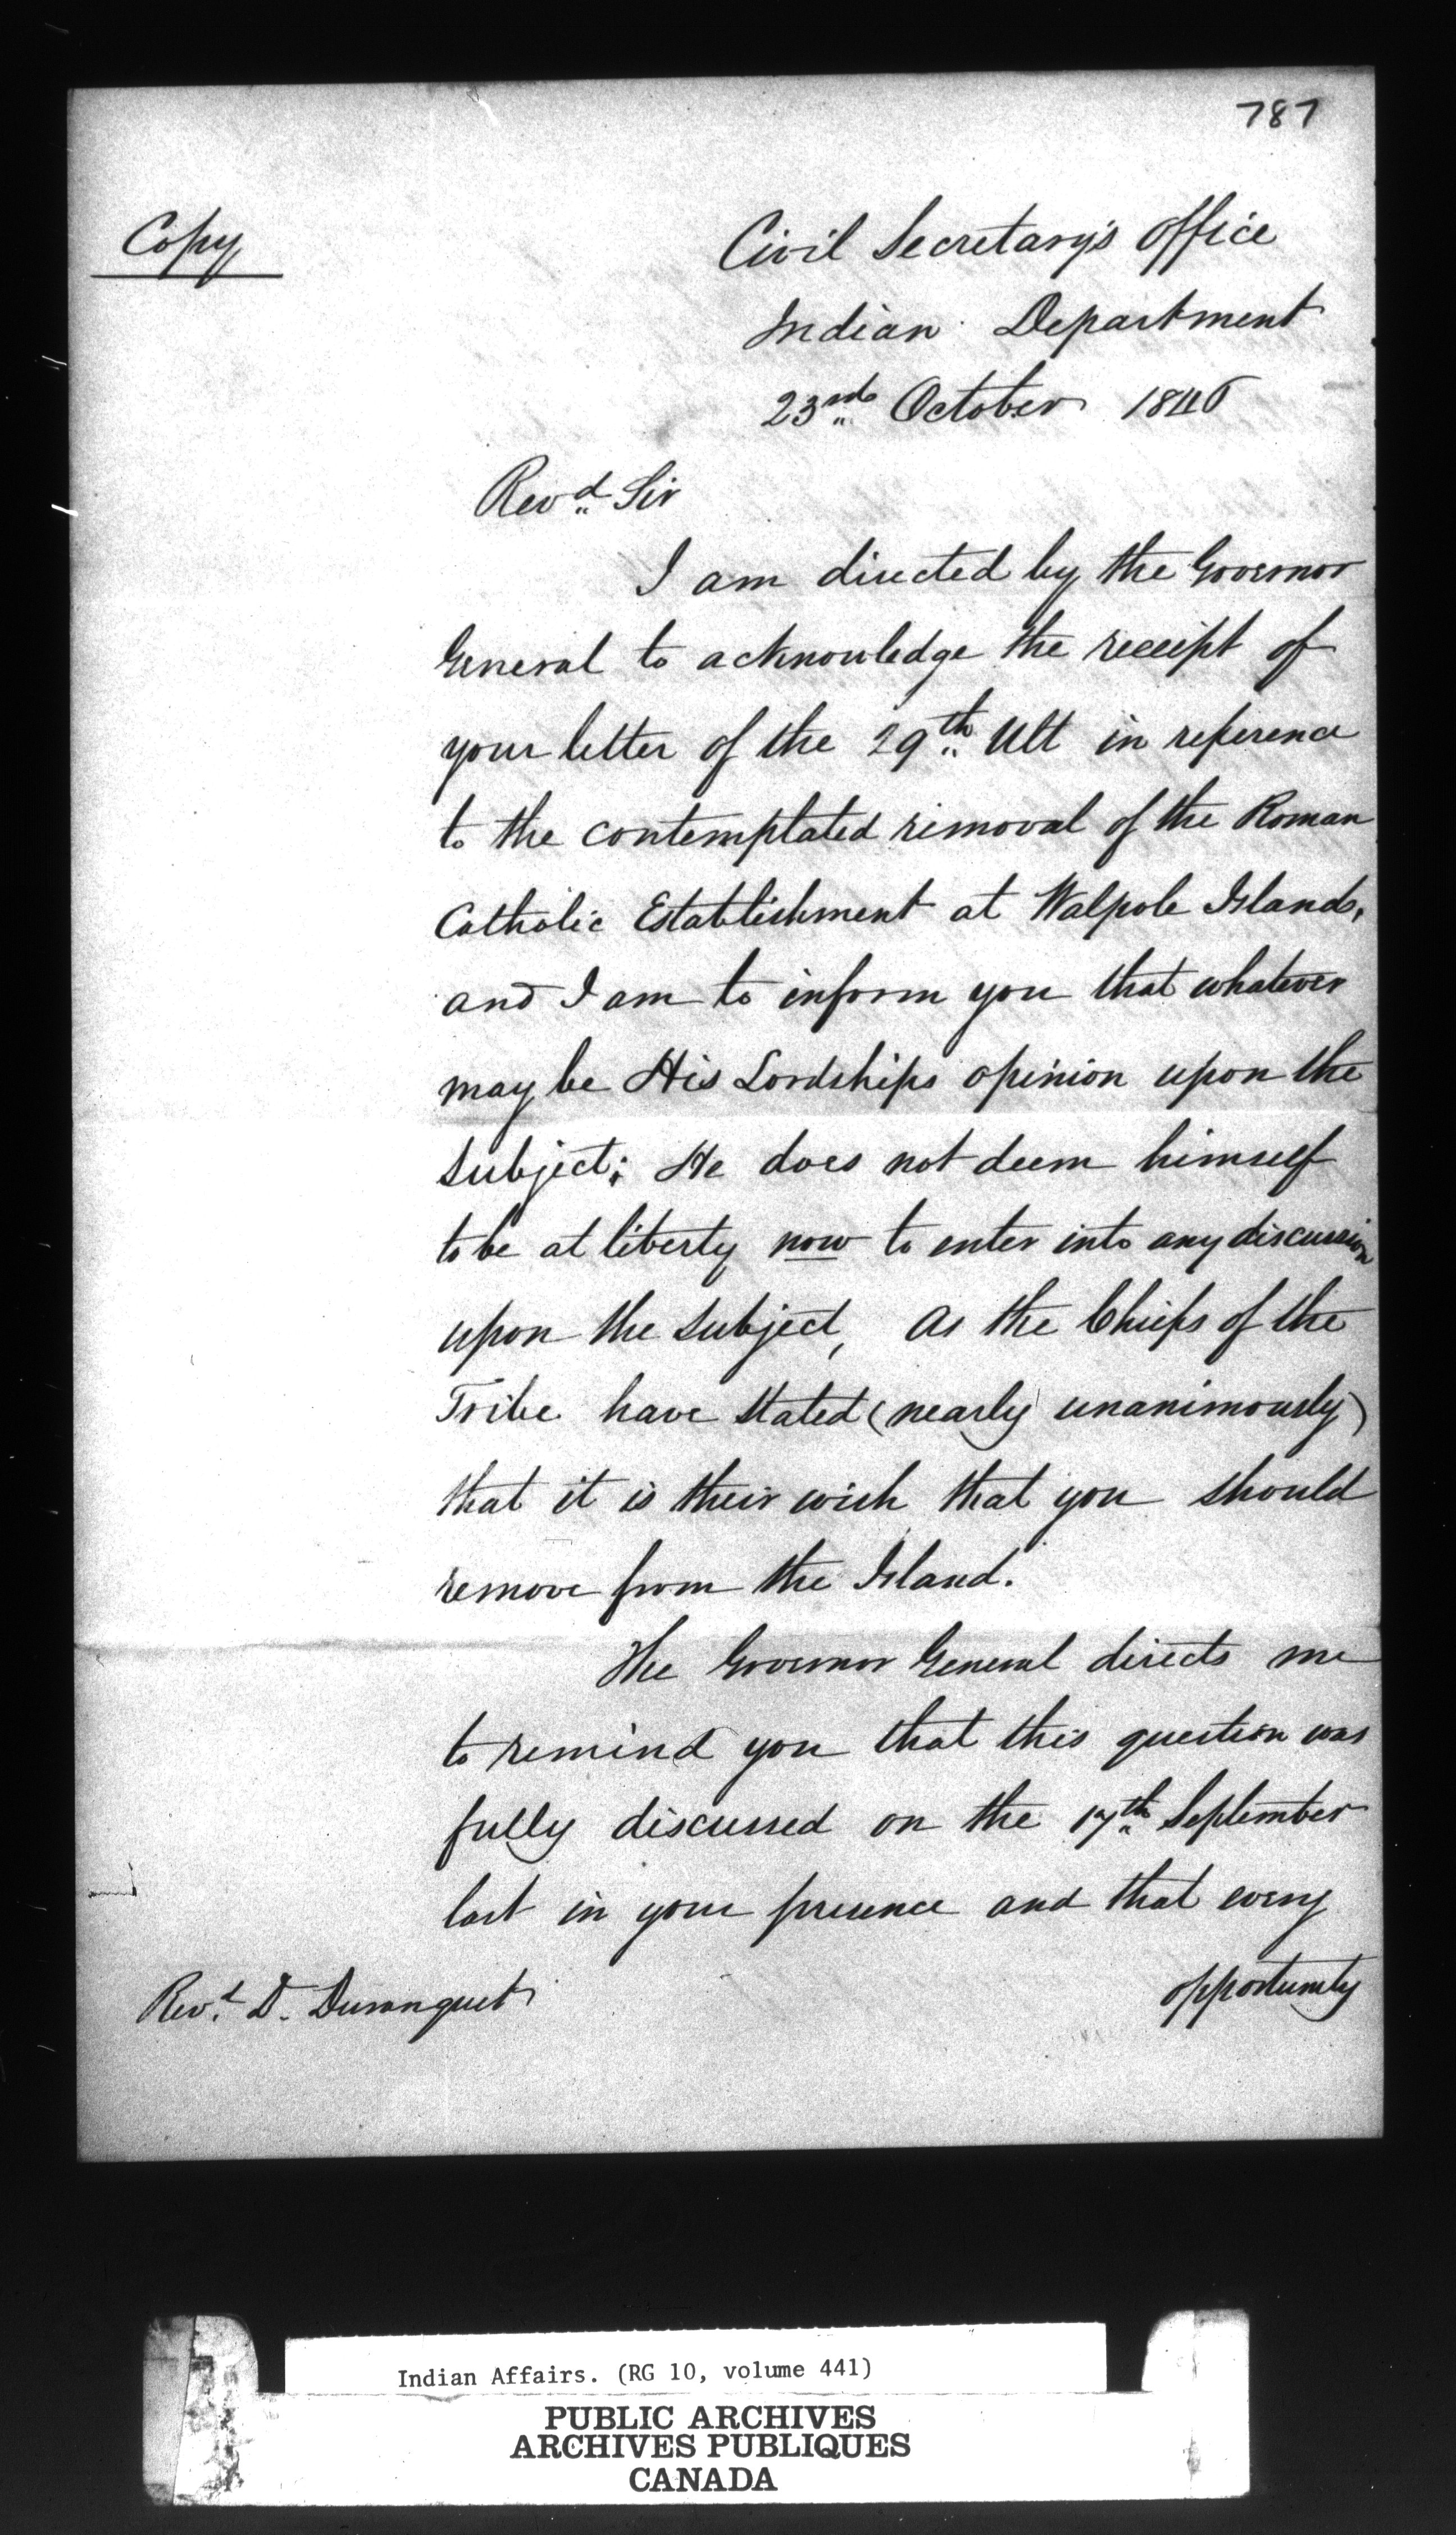 787
Copy
Civil Secretary's Office
Indian Department
23rd October 1846
Revd Sir
I am directed by the Governor
General to acknowledge the receipt of
your letter of the 29th Ult in reference
to the contemplated removal of the Roman
Catholic Establishment at Walpole Island,
and I am to inform you that whatever
may be His Lordships opinion upon the
Subject; He does not deem himself
to be at liberty now to enter into any discussion
upon the Subject, As the Chiefs of the
Tribe have stated (nearly unanimously)
that it is their wish that you should
remove from the Island.
The Governor General directs me
to remind you that this question was
fully discussed on the 17th September
last in your presence and that every
opportunity
Revd. D. Duranquet
Indian Affairs. (RG 10, volume 441)
PUBLIC ARCHIVES
ARCHIVES PUBLIQUES
CANADA